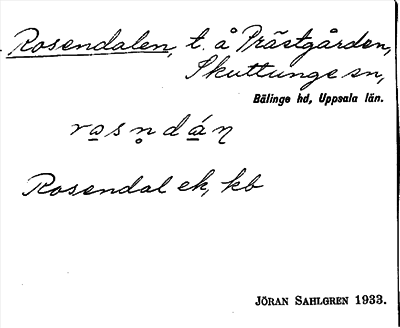 Rosendalen, t. å Prästgården,
Skuttunge sn,
Bälinge hd, Uppsala län.
ro̱sn̥dá̱η
Rosendal ek, kb
JÖRAN SAHLGREN 1933.